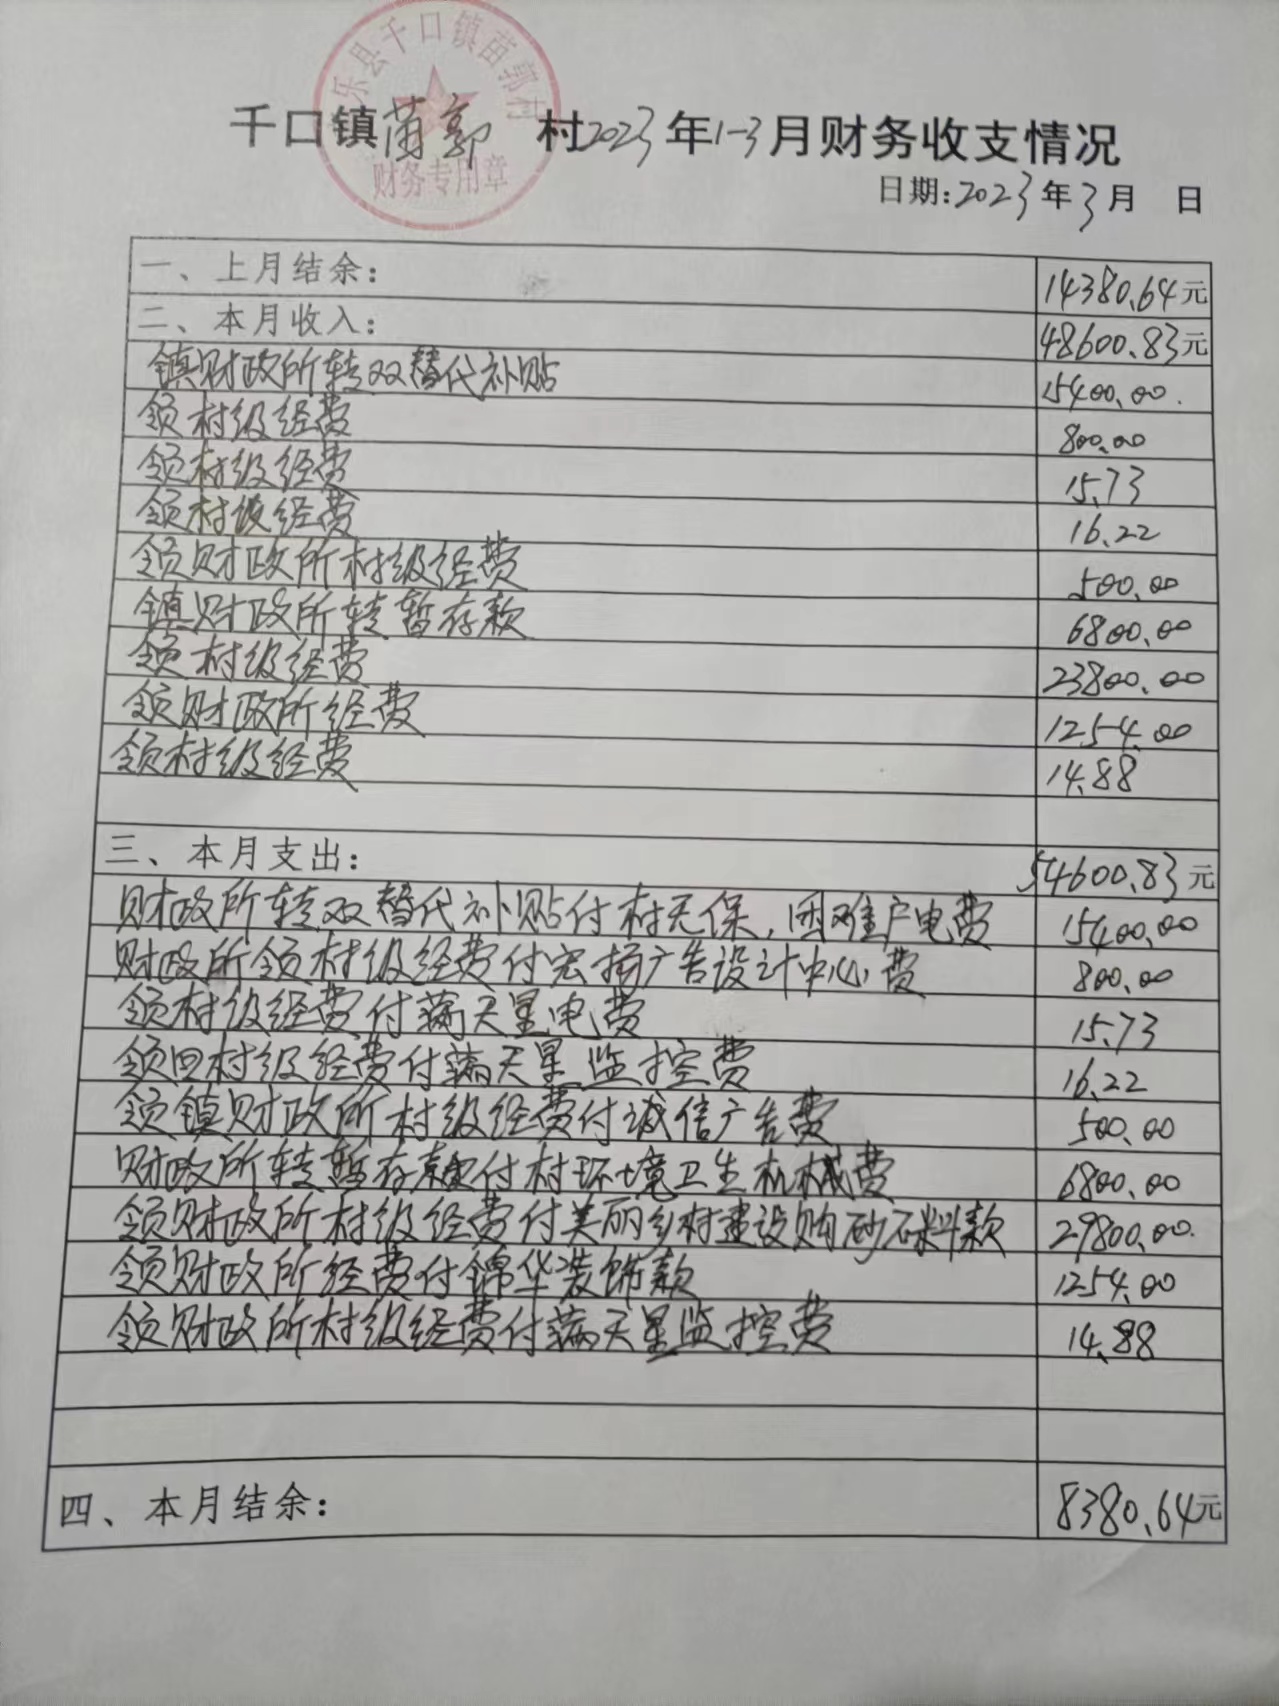 乐县千口镇苗郭村
财务专用章
千口镇苗郭 村2023年1-3月财务收支情况
日期:2023年3月 日
一、上月结余: 14380.64元
二、本月收入: 48600.83元
镇财政所转双替代补贴 15400.00.
领村级经费 800.00
领村级经费 15.73
领村级经费 16.22
领财政所村级经费 500.00
镇财政所转暂存款 6800.00
领村级经费 23800.00
领财政所经费 1254.00
领村级经费 14.88
三、本月支出: 54600.83元
财政所转双替代补贴付村无保,困难户电费 15400.00
财政所领村级经费付宏扬广告设计中心费 800.00
领村级经费付满天星电费 15.73
领回村级经费付满天星监控费 16.22
领镇财政所村级经费付诚信广告费 500.00
财政所转暂存款付村环境卫生机械费 6800.00
领财政所村级经费付美丽乡村建设购砂石料款 29800.00.
领财政所经费付锦华装饰款 1254.00
领财政所村级经费付满天星监控费 14.88
四、本月结余: 8380.64元